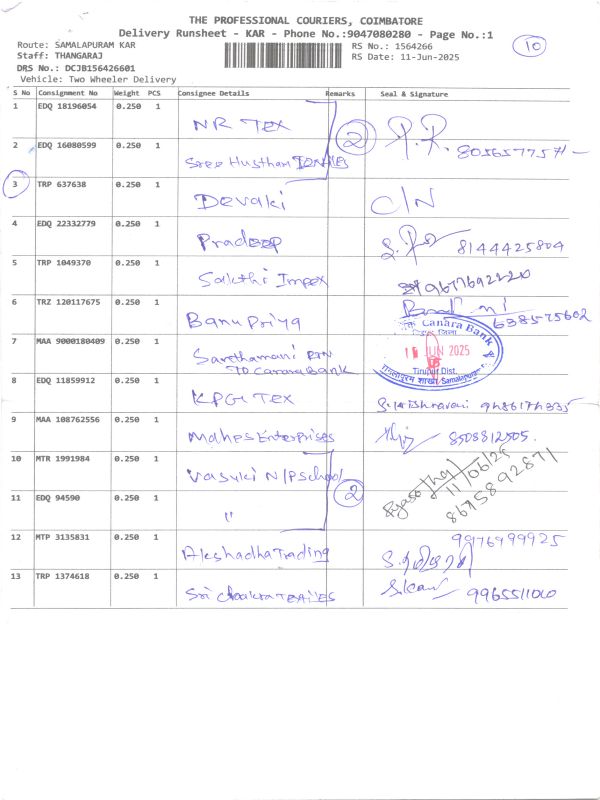 THE PROFESSIONAL COURIERS, COIMBATORE
Delivery Runsheet - KAR - Phone No.:9047080280 - Page No.:1
Route: SAMALAPURAM KAR
RS No.: 1564266
10
Staff: THANGARAJ
RS Date: 11-Jun-2025
DRS No.: DCJB156426601
Vehicle: Two Wheeler Delivery
S No Consignment No Weight PCS Consignee Details Remarks Seal & Signature
1 EDQ 18196054 0.250 1 NR TEX
2
2 EDQ 16080599 0.250 1 Sree Hustham
3 TRP 637638 0.250 1 Devaki C/N
4 EDQ 22332779 0.250 1 Pradeep 8144425804
5 TRP 1049370 0.250 1 Sakthi Impex 9677692220
6 TRZ 120117675 0.250 1 Banu Priya 638575602
7 MAA 9000180409 0.250 1
TO Canara Bank
Canara Bank
JUN 2025
Tirupur Dist.
8 EDQ 11859912 0.250 1 KPG TEX
9 MAA 108762556 0.250 1 Mahes Enterprises 8508812505.
10 MTR 1991984 0.250 1 Vasuki N/P School
11/06/25
8675892871
2
11 EDQ 94590 0.250 1 "
12 MTP 3135831 0.250 1 Akshadha Trading 9976999925
13 TRP 1374618 0.250 1 Sri Chakra